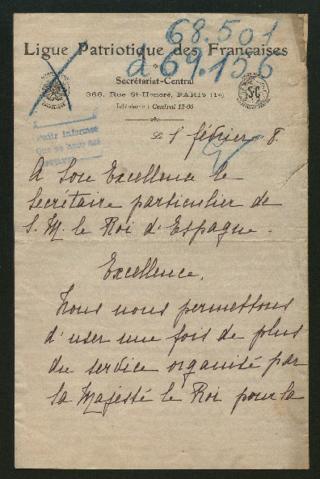 68.501
Ligue Patriotique des Françaises
d 69.156
Secrétariat-Central
368, Rue St-Honoré, PARIS (1er)
Téléphone : Central 12-06
février
A Son Excellence le
Secrétaire particulier de
S. M. le Roi d'Espagne.
Excellence,
Nous nous permettons
d'user une fois de plus
du service organisé par
Sa Majesté le Roi pour la